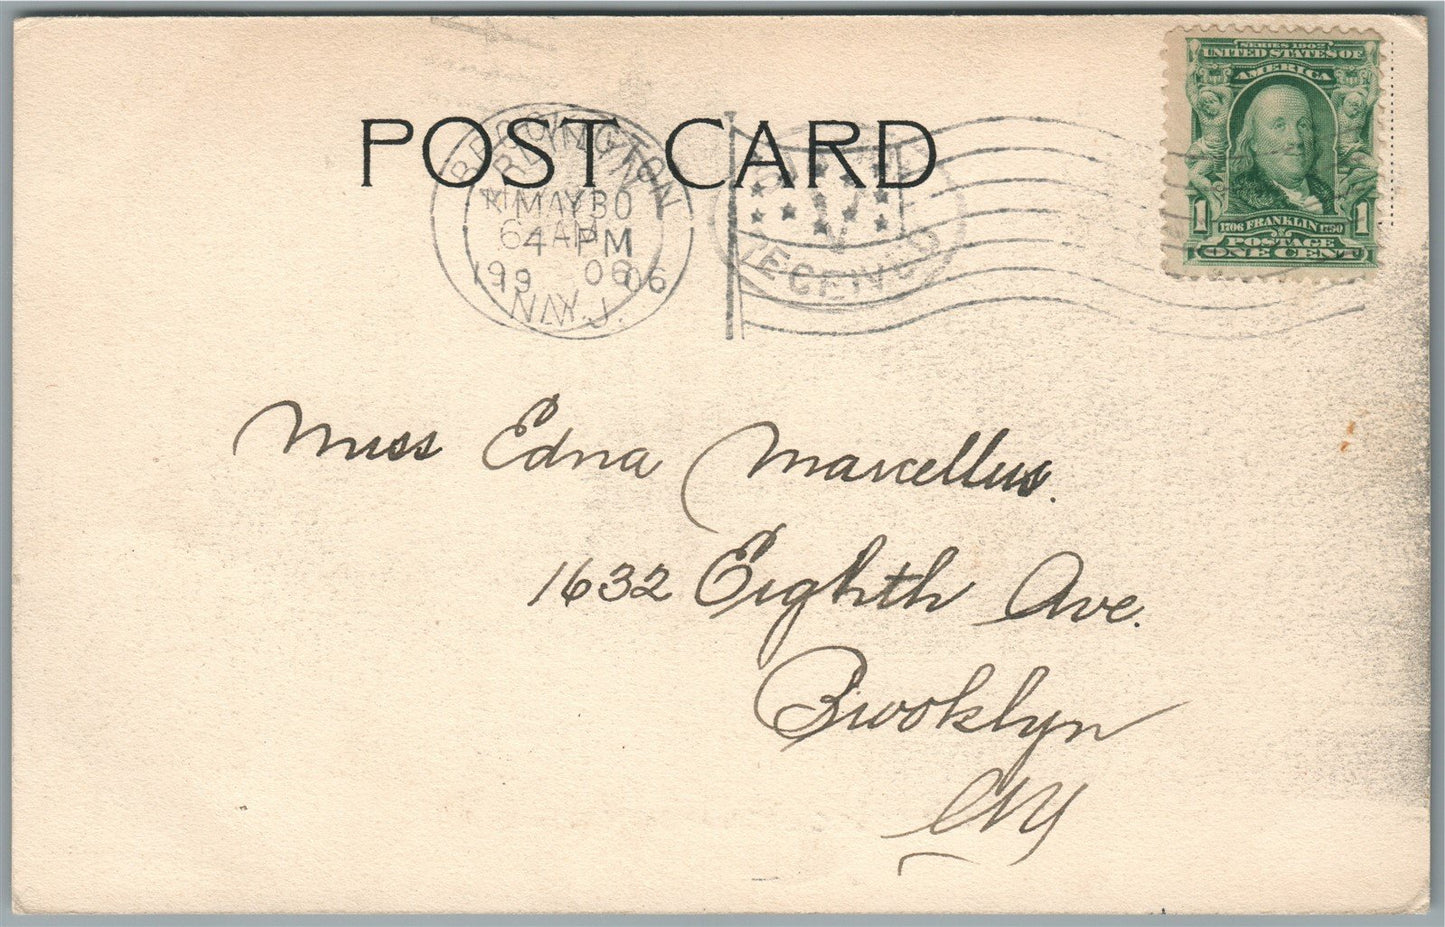 SERIES 1902
UNITED STATES OF
AMERICA
POST CARD
MAY 30
4 PM
1906
N.J.
RECEIVED
1 1
1706 FRANKLIN 1790
POSTAGE
ONE CENT
Miss Edna Marcellus.
1632 Eighth Ave.
Brooklyn
NY